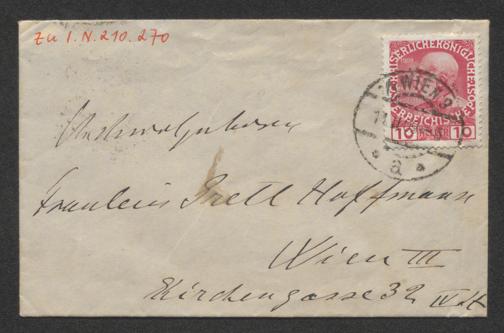 Zu I.N. 210.270
KAISERLICHEKÖNIGLICHE
ÖSTERREICHISCHE
10 10
WIEN
a
Hochwohlgeboren
Fräulein Grett Hoffmann
Wien III
Kirchengasse 32 IV St